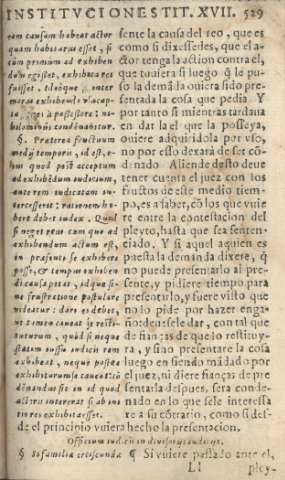 INSTITVCIONES TIT. XVII. 529
rem causam habeat actor
quam habiturus esset, si
cùm primùm ad exhiben
dum egisset, exhibita res
fuisset. Ideóque
moras exhibendi vsucap
à possessore : ni-
hilominùs condemnabitur.
§. Preterea fructuum
medij temporis, id est, e-
ius quod post acceptum
ad exhibẽdum iudicium,
ante rem iudicatam in-
tercesserit : rationem ha-
bere debet iudex. Quòd
si neget reus cum quo ad
exhibendum actum est,
in præsenti se exhibere
posse, & tempus exhiben
di causa petat, idque si-
ne frustratione postulare
videatur : dari ei debet,
vt tamen caueat se resti-
tuturum, quòd si neque
statim iussu iudicis rem
exhibeat, neque postea
exhibiturum se caueat: cõ
demnandus est in id quod
actoris intererat si ab ini
tio res exhibita esset.
sente la causa del reo, que es
como si dixessedes, que el a-
ctor tenga la action contra el,
que tuuiera si luego q̃ le pu-
so la demãda ouiera sido pre-
sentada la cosa que pedia. Y
por tanto si mientras tardaua
en dar la el que la posseya,
ouiere adquiridola por vso,
no por esso dexarà de ser cõ-
denado. Aliende desto deue
tener cuenta el juez con los
fructos de este medio tiem-
po, es a saber, cõ los que vuie
re entre la contestacion del
pleyto, hasta que sea senten-
ciado. Y si aquel aquien es
puesta la demanda dixere, q̃
no puede presentarlo al pre-
sente, y pidiere tiempo para
presentarlo, y fuere visto que
no lo pide por hazer enga-
ño: deuesele dar, con tal que
de fianças de que lo restituy-
ra, y sino presentare la cosa
luego en siendo mãdado por
el juez, ni diere fianças de pre
sentarla despues, sera conde-
nado en lo que sele interessa
re a su cõtrario, como si des-
de el principio vuiera hecho la presentacion.
Officium iudicis in diuisorijs iudicijs.
§ Si familiæ erciscundæ
¶ Si vuiere passado ante el,
Ll pley-